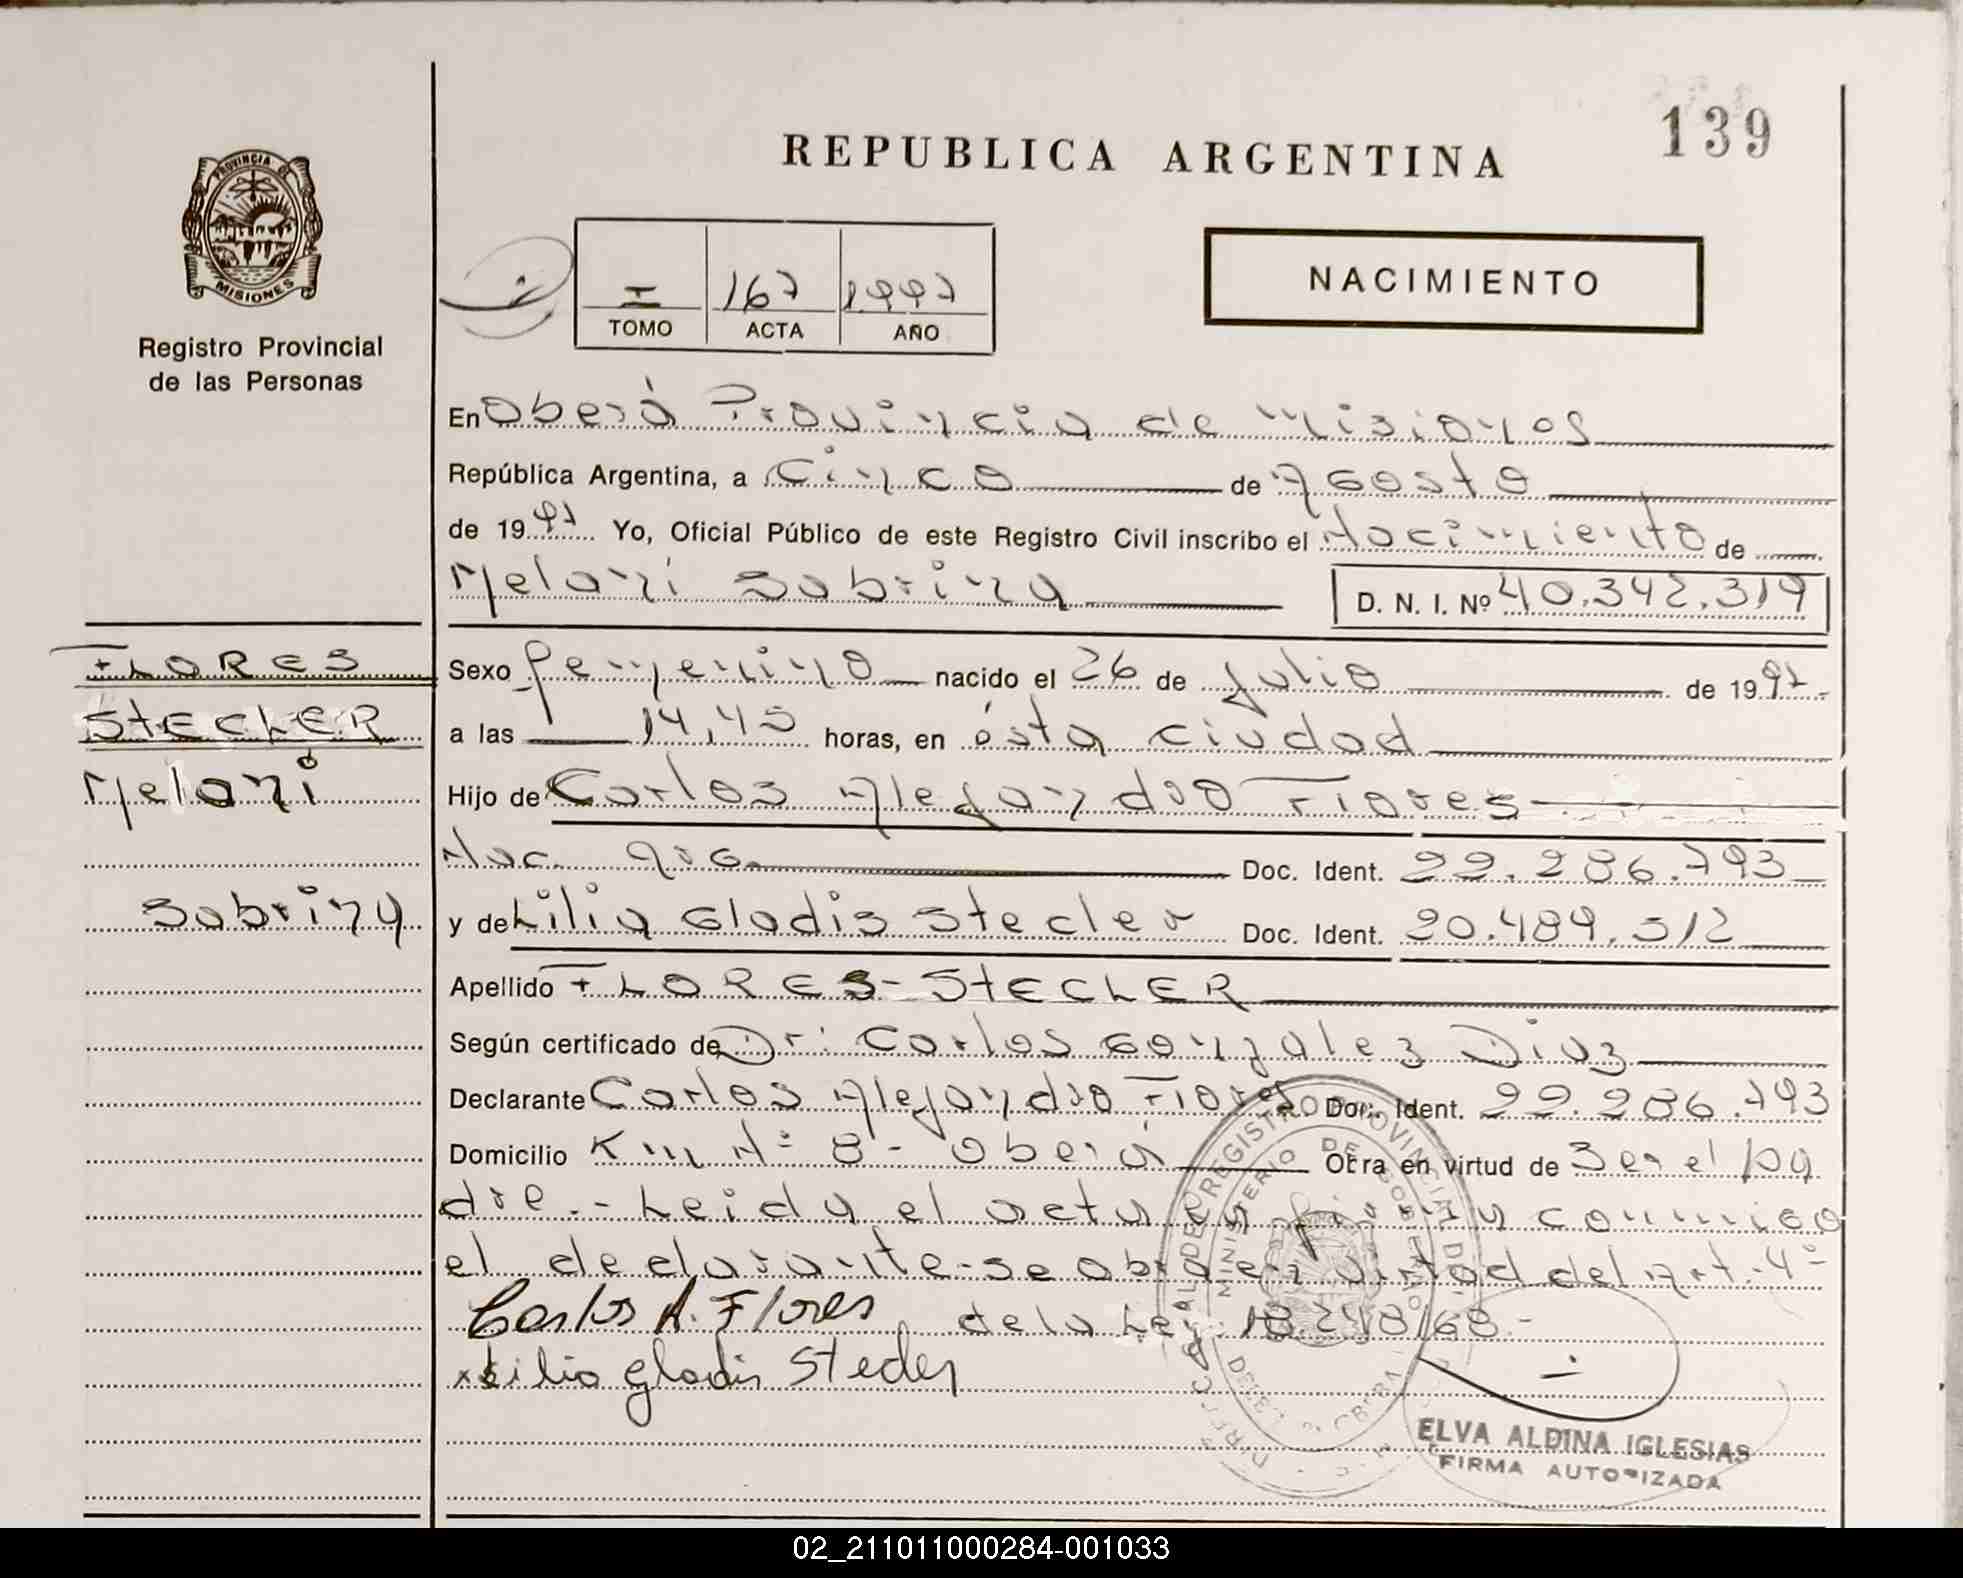 139
REPUBLICA ARGENTINA
PROVINCIA DE
MISIONES
Registro Provincial
de las Personas
I 167 1997
TOMO ACTA AÑO
NACIMIENTO
En Oberá Provincia de Misiones
República Argentina, a Cinco de Agosto
de 1997 Yo, Oficial Público de este Registro Civil inscribo el Nacimiento de
Melani Sabrina D. N. I. Nº 40.342.319
FLORES
STECLER
Melani
Sabrina
Sexo femenino nacido el 26 de Julio de 1997
a las 14,45 horas, en ésta ciudad
Hijo de Carlos Alejandro Flores
Nac. Arg. Doc. Ident. 22.286.793
y de Lilia Gladis Stecler Doc. Ident. 20.489.512
Apellido FLORES-STECLER
Según certificado de Dr: Carlos Gonzalez Diaz
Declarante Carlos Alejandro Flores Doc. Ident. 22.286.793
Domicilio Km Nº 8 - Oberá Obra en virtud de Ser el pa
dre.- Leida el acta firma conmigo
el declarante-se obra en virtud del Art. 4º
Carlos A. Flores de la Ley 18.248/68.-
x Lilia Gladis Stecler
ELVA ALDINA IGLESIAS
FIRMA AUTORIZADA
02_211011000284-001033